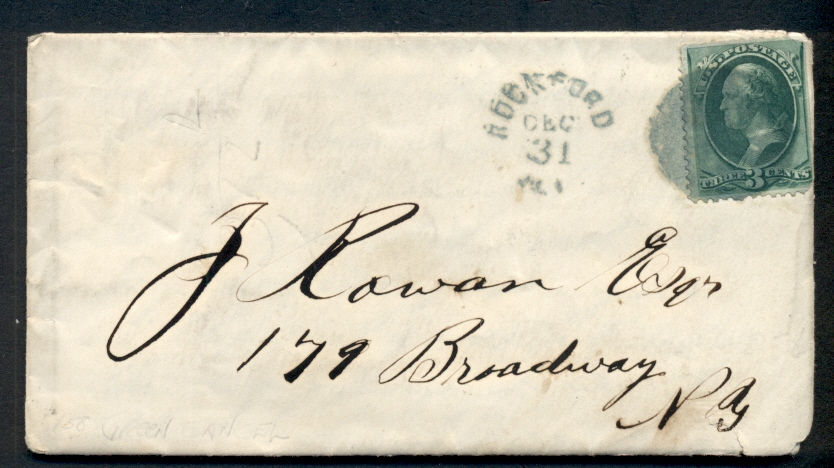 U.S. POSTAGE
THREE 3 CENTS
ROCKFORD
DEC
31
ILL
J Rowan Esqr
179 Broadway
N Y
GREEN CANCEL